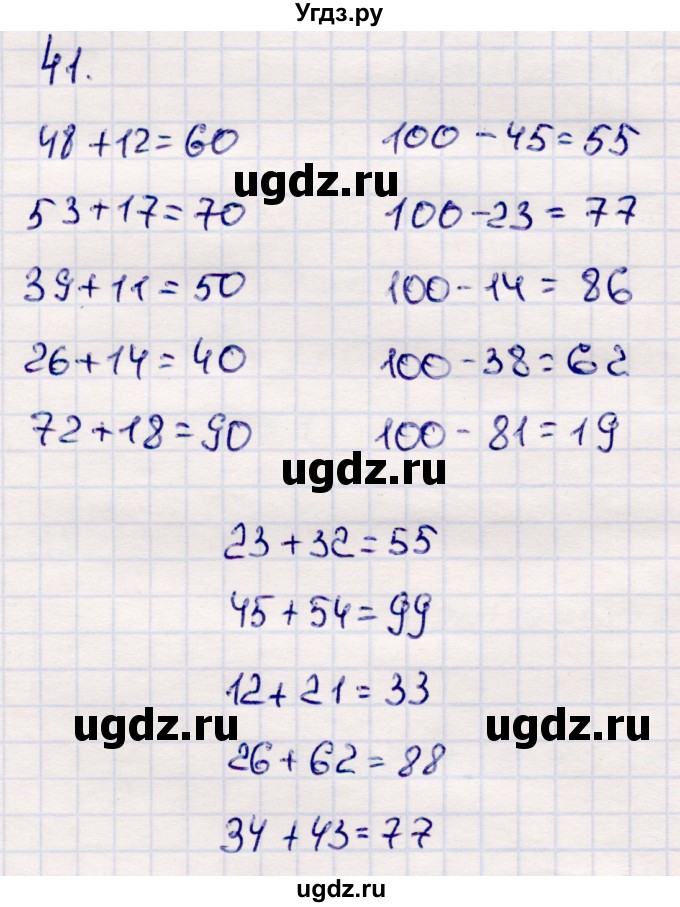 Угдз.ру
41.
48+12=60 100-45=55
ugdz.ru
53+17=70 100-23=77
39+11=50 100-14=86
26+14=40 100-38=62
72+18=90 100-81=19
ugdz.ru
23+32=55
45+54=99
12+21=33
ugdz.ru ugdz.ru
26+62=88
34+43=77
ugdz.ru